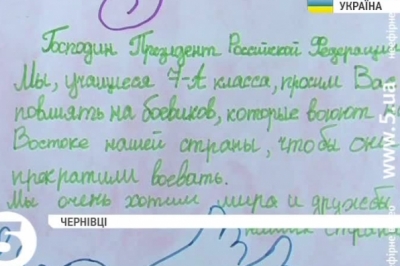 УКРАЇНА
Господин Президент Российской Федерации
Мы, учащиеся 7-А класса, просим Вас
повлиять на боевиков, которые воюют на
Востоке нашей страны, чтобы они
прекратили воевать.
Мы очень хотим мира и дружбы
ЧЕРНІВЦІ
5
www.5.ua